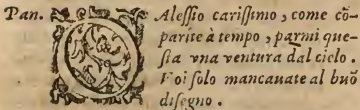 Pan. O Alessio carissimo, come cõ-
parite à tempo, parmi que-
sta vna ventura dal cielo.
Voi solo mancauate al buõ
disegno.